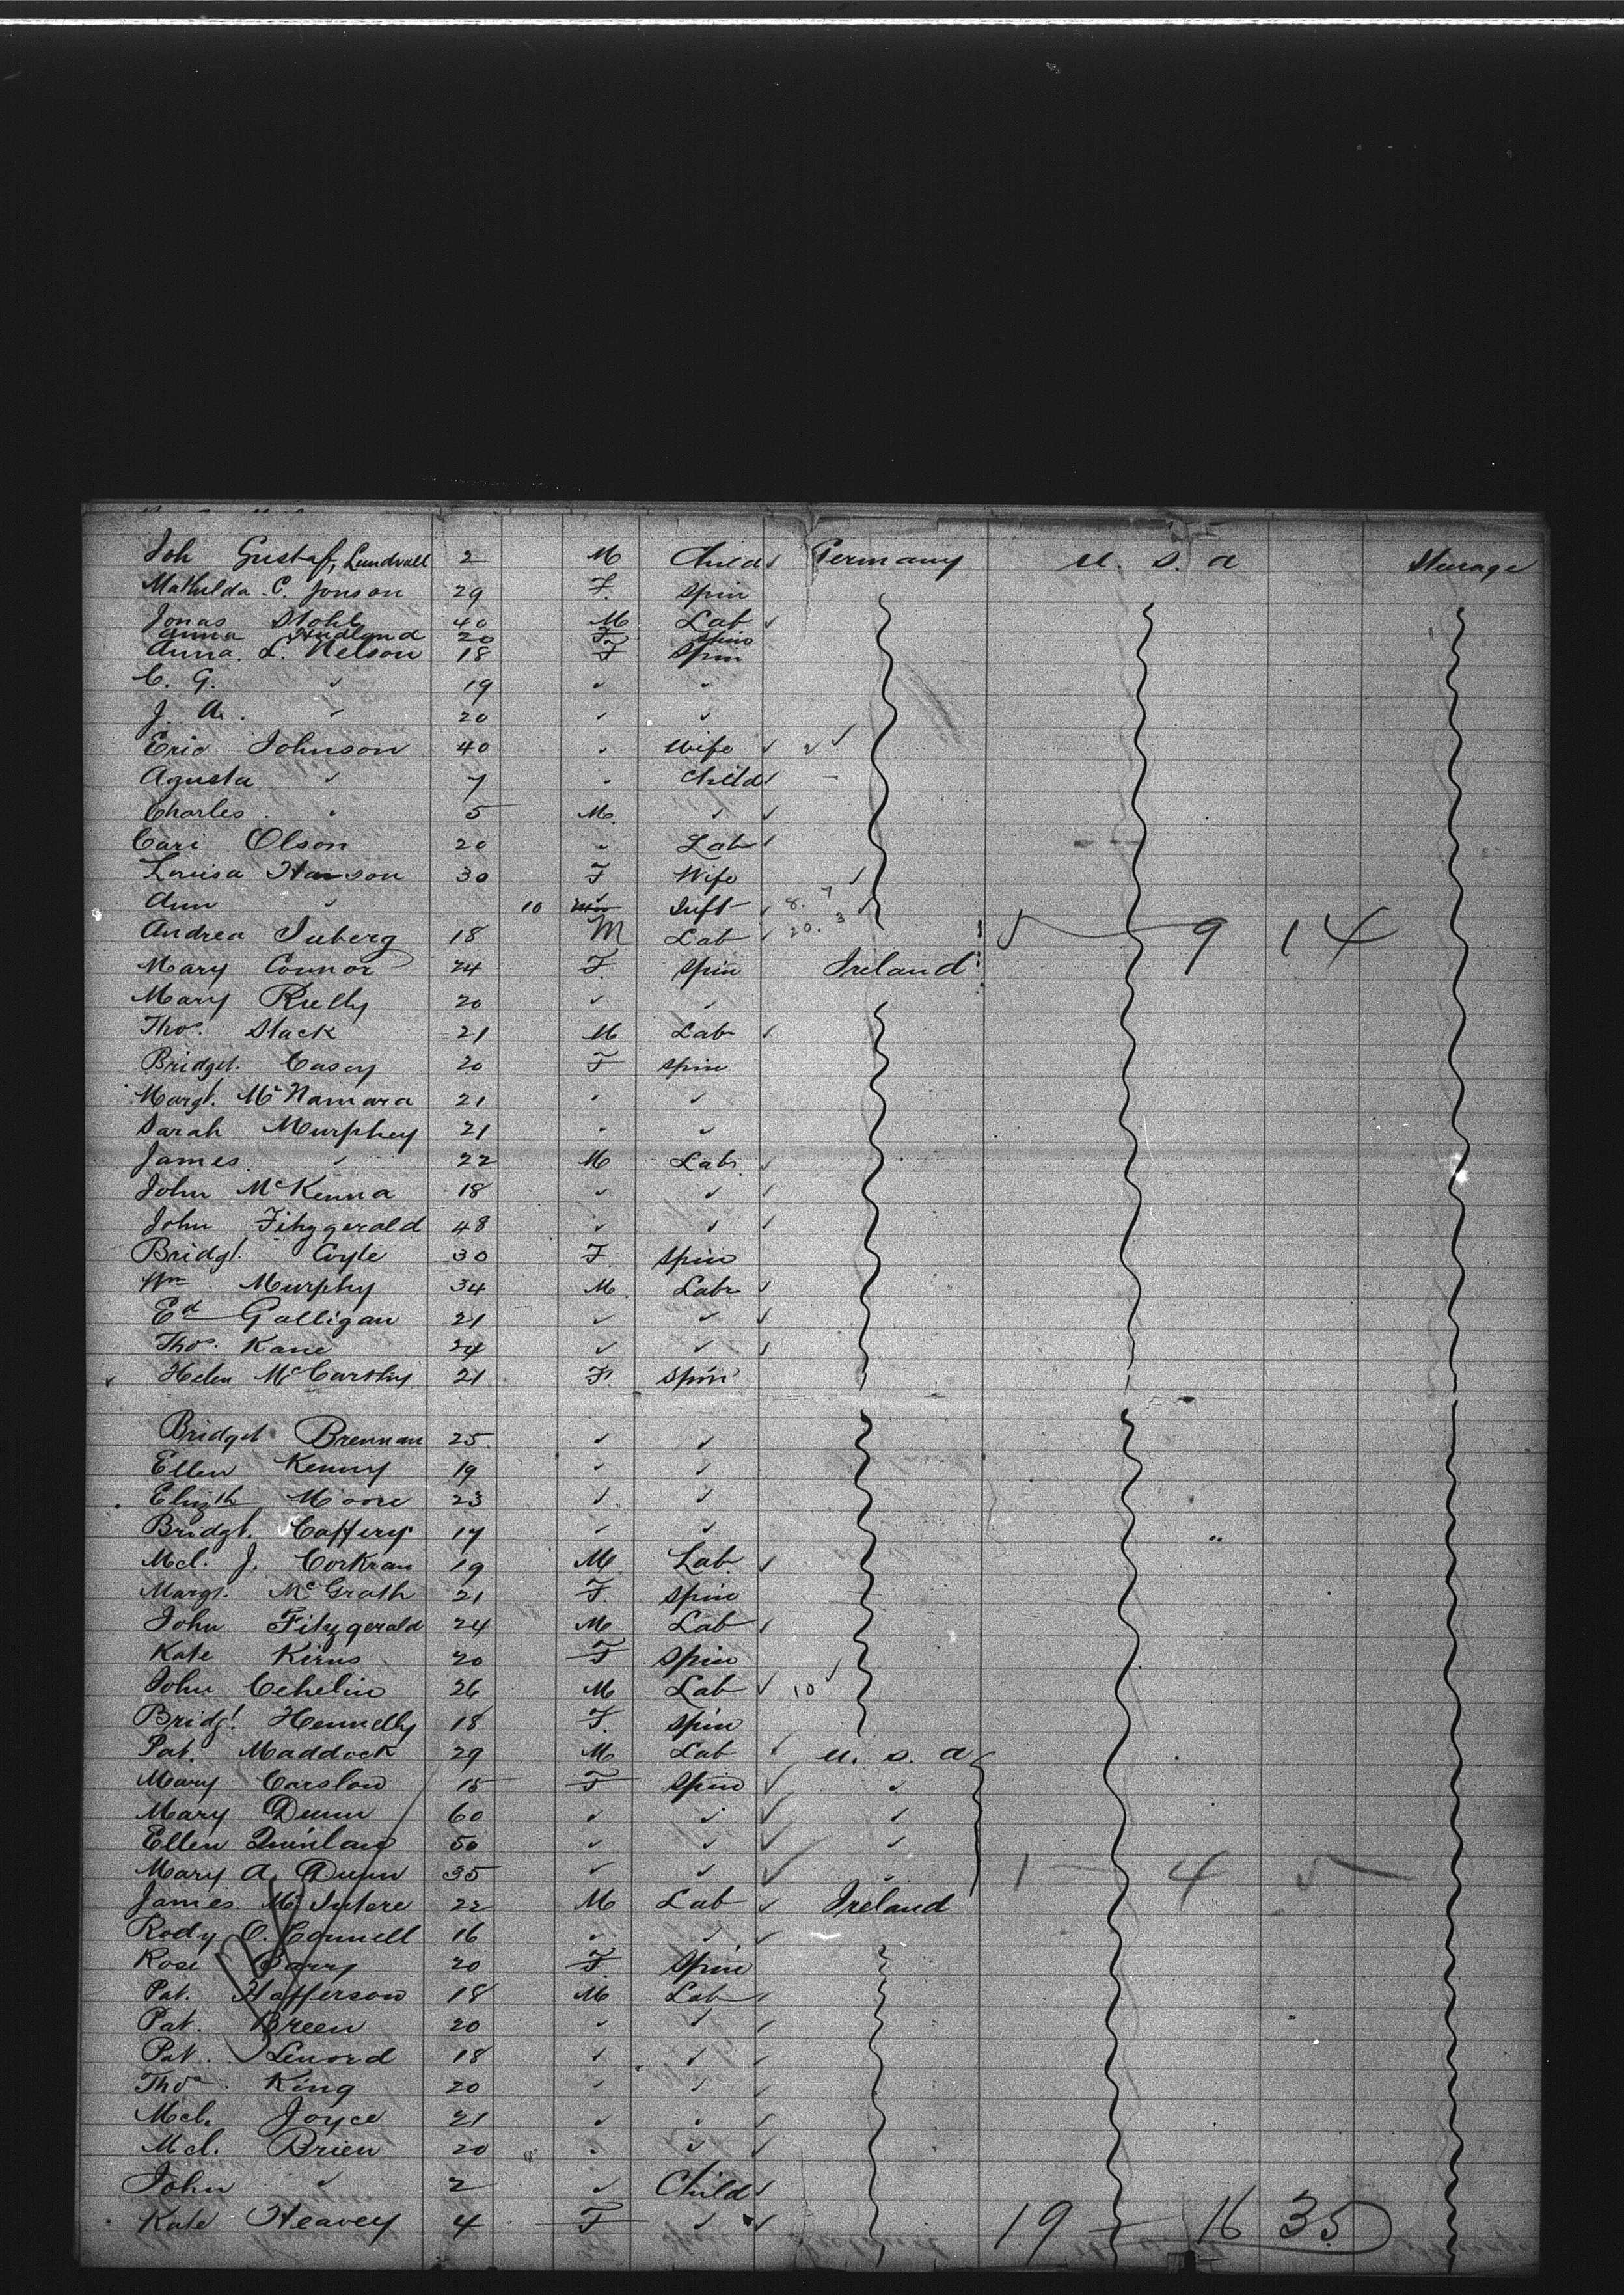 Joh Gustaf, Lundvall 2 M Child ✓ Germany U. S. A Steerage
Mathilda C. Jonson 29 F. Spin
Jonas Stohl 40 M Lab ✓
Anna Hudland 20 F Spin
Anna. L. Nelson 18 F Spin
C. G. ✓ 19 ✓ ✓
J. A. ✓ 20 ✓ ✓
Eric Johnson 40 ✓ Wife ✓ 2 ✓
Agusta ✓ 7 ✓ Child ✓
Charles ✓ 5 M. ✓ ✓
Cari Olson 20 ✓ Lab ✓
Louisa Hanson 30 F Wife ✓
Ann ✓ 10 Inft ✓ 8. 7
Andrea Inberg 18 M Lab ✓ 20. 3 5 — 9 14
Mary Connor 24 F. Spin Ireland
Mary Rielly 20 ✓ ✓
Thos. Stack 21 M Lab ✓
Bridget. Casey 20 F Spin
Margt. McNamara 21 ✓ ✓
Sarah Murphey 21 ✓ ✓
James ✓ 22 M Lab. ✓
John McKenna 18 ✓ ✓ ✓
John Fitzgerald 48 ✓ ✓ ✓
Bridgt. Coyle 30 F. Spin
Wm Murphy 34 M. Lab ✓
Ed Galligan 21 ✓ ✓ ✓
Thos. Kane 24 ✓ ✓ ✓
✓ Helen McCarthy 21 F. Spin
Bridget Brennan 25 ✓ ✓
Ellen Kenny 19 ✓ ✓
Elizth Moore 23 ✓ ✓
Bridgt. Caffery 17 ✓ ✓
Mcl. J. Corkran 19 M Lab. ✓
Margt. McGrath 21 F. Spin
John Fitzgerald 24 M Lab ✓
Kate Kirns 20 F Spin
John Cehelin 26 M Lab ✓ 10 ✓
Bridgt. Hennelly 18 F. Spin
Pat. Maddock 29 M Lab ✓ U. S. A
Mary Carslow 18 F Spin ✓ ✓
Mary Dunn 60 ✓ ✓ ✓ ✓
Ellen Quinlan 50 ✓ ✓ ✓ ✓
Mary A. Dunn 35 ✓ ✓ ✓ ✓ 1 — 4 5
James McIntere 22 M Lab ✓ Ireland
Rody O. Connell 16 ✓ ✓ ✓
Rose Barry 20 F Spin
Pat. Hafferson 18 M Lab ✓
Pat. Breen 20 ✓ ✓ ✓
Pat. Lenord 18 ✓ ✓ ✓
Thos. King 20 ✓ ✓ ✓
Mcl. Joyce 21 ✓ ✓ ✓
Mcl. Brien 20 ✓ ✓ ✓
John ✓ 2 ✓ Child ✓
Kate Heavey 4 F ✓ ✓ 19 — 16 35